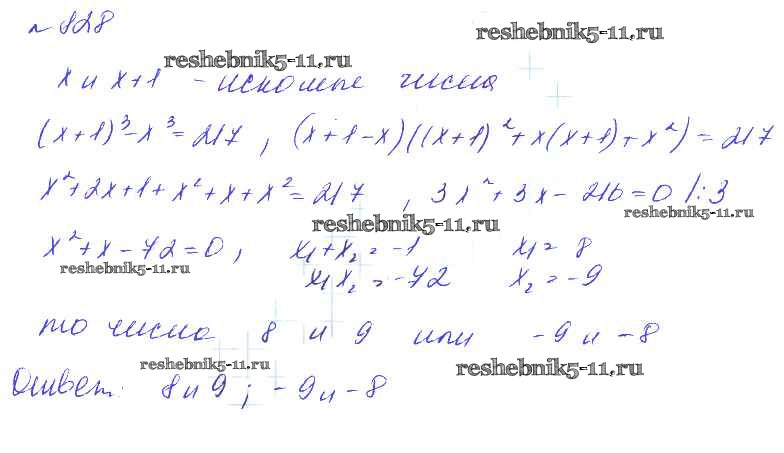 №828
reshebnik5-11.ru
reshebnik5-11.ru
x и x+1 - искомые числа
(x+1)³-x³=217, (x+1-x)((x+1)²+x(x+1)+x²)=217
x²+2x+1+x²+x+x²=217, 3x²+3x-216=0 /:3
reshebnik5-11.ru
reshebnik5-11.ru
x²+x-72=0, x₁+x₂=-1 x₁=8
reshebnik5-11.ru
x₁x₂=-72 x₂=-9
то числа 8 и 9 или -9 и -8
reshebnik5-11.ru
reshebnik5-11.ru
Ответ: 8 и 9; -9 и -8